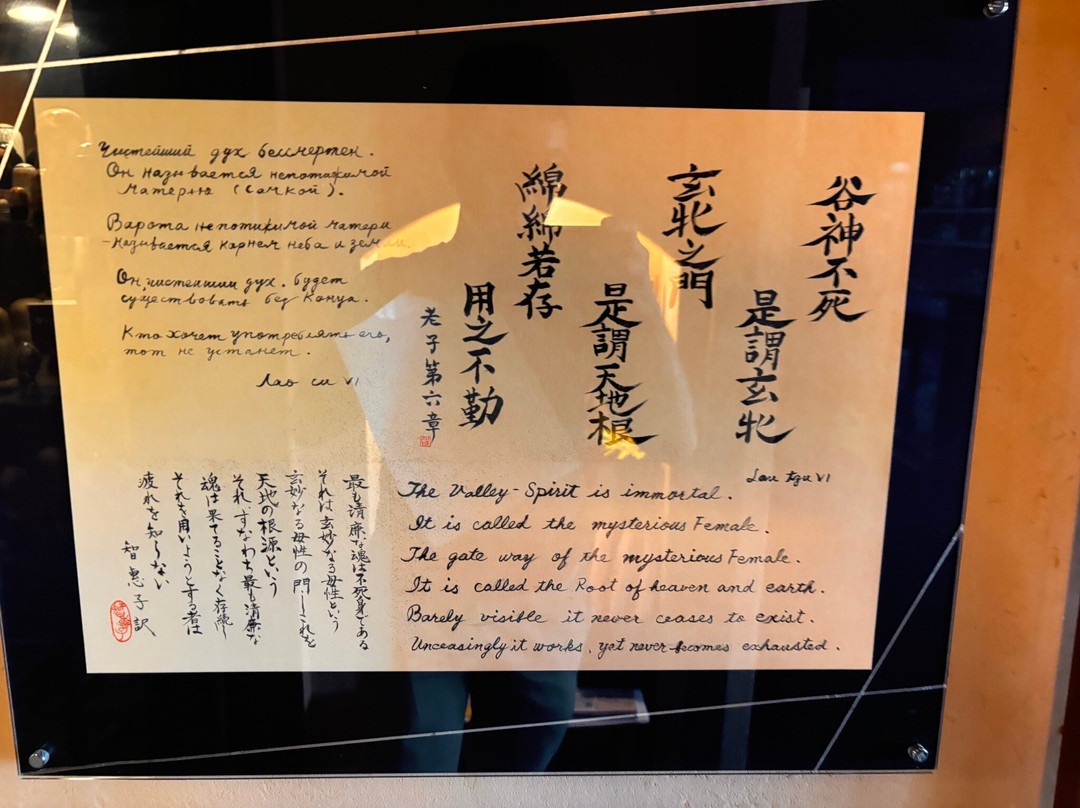 Чистейший дух бессмертен.
Он называется непотижимой
матерью (самкой).
Варота непотижимой матери
-называется карнем неба и земли.
Он, чистейший дух. будет
существовать без конца.
Кто хочет употреблять его,
тот не устанет.
Лао си VI
谷神不死
是謂玄牝
玄牝之門
是謂天地根
綿綿若存
用之不勤
老子第六章
最も清廉な魂は不死身である
それは玄妙なる母性という
玄妙なる母性の門―これを
天地の根源という
それ、すなわち最も清廉な
魂は果てることなく存続し
それを用いようとする者は
疲れを知らない
智惠子訳
Lau tzu VI
The Valley-Spirit is immortal.
It is called the mysterious Female.
The gate way of the mysterious Female.
It is called the Root of heaven and earth.
Barely visible it never ceases to exist.
Unceasingly it works, yet never becomes exhausted.